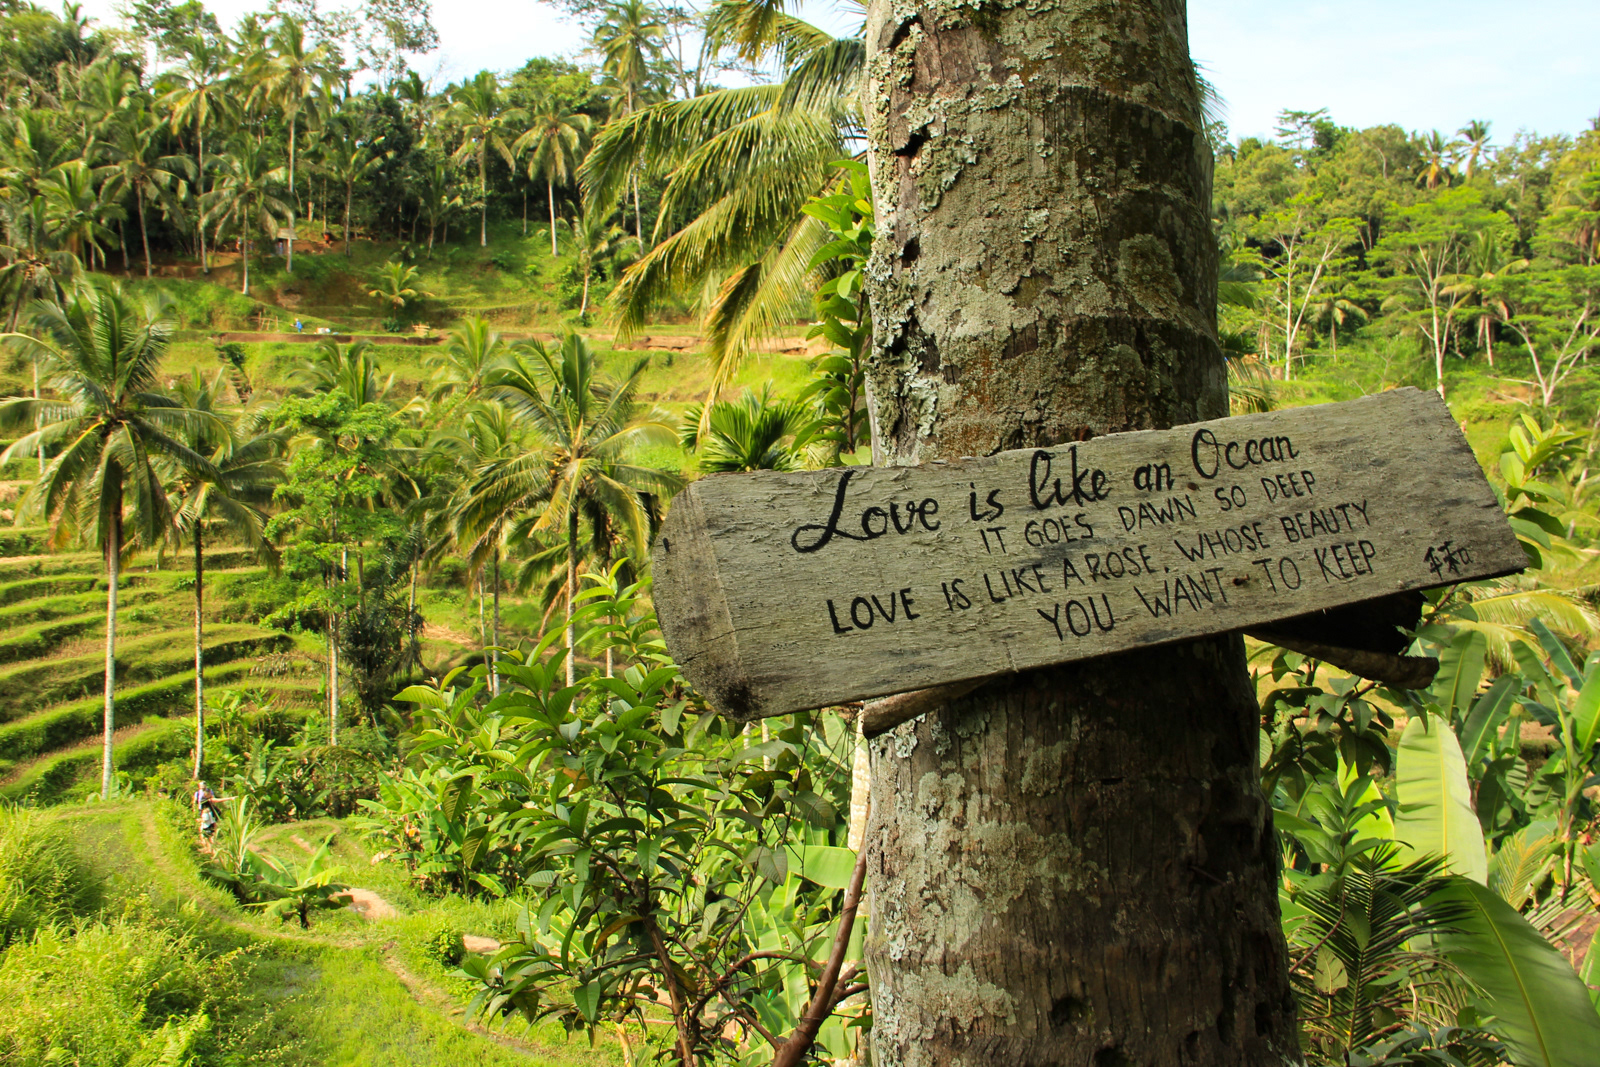 Love is like an Ocean
IT GOES DAWN SO DEEP
LOVE IS LIKE A ROSE. WHOSE BEAUTY
YOU WANT TO KEEP
平和